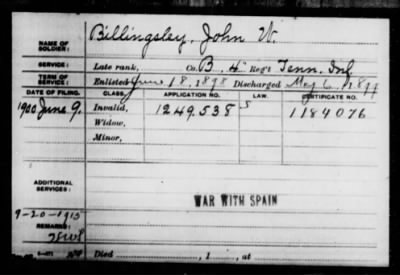 NAME OF SOLDIER: Billingsley, John W.
SERVICE: Late rank, Co. B, 4" Reg't Tenn. Inf.
TERM OF SERVICE: Enlisted June 18, 1898 Discharged May 6, 1899
DATE OF FILING. CLASS. APPLICATION NO. LAW. CERTIFICATE NO.
1900 June 9. Invalid, 1249.538 S 1184076
Widow,
Minor,
ADDITIONAL SERVICES:
WAR WITH SPAIN
9-20-1915
REMARKS:
Died , 1 , at